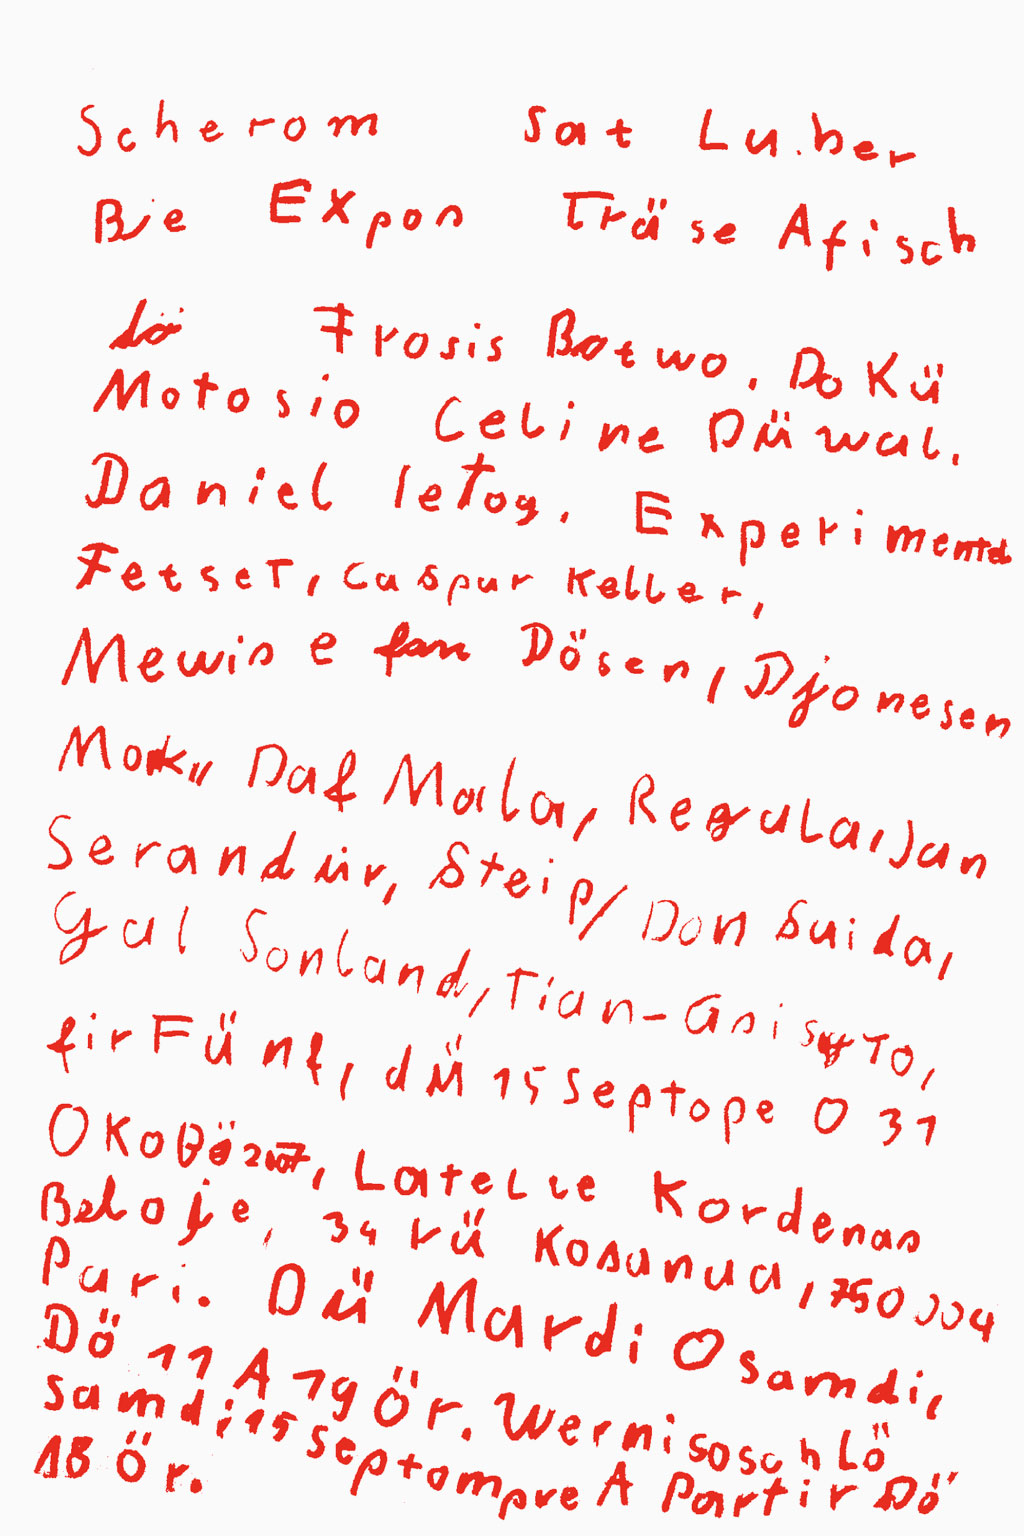 Scherom sat Luber
Bie Expon Träse Afisch
dö Frosis Batwo, Do Kü
Motosio Celine Düwal.
Daniel leTog, Experimentel
FetseT, Caspur Keller,
Mewis e fan Dösen, Djonesen
Mok„ Daf Mala, Regula, Jan
Serandür, Steip/ Don Suida,
Gal Sonland, Tian-Gnisyto,
fir Fünf, dü 15 Septope O 31
OKoBö 2007, Latelie Kordenas
Beloje, 34 rü Kosanua, 750004
Pari. Dü Mardi O samdi,
Dö 11 A 19 ör. Wernisoschlö
samdi 15 septompre A Partir Dö
18 ör.